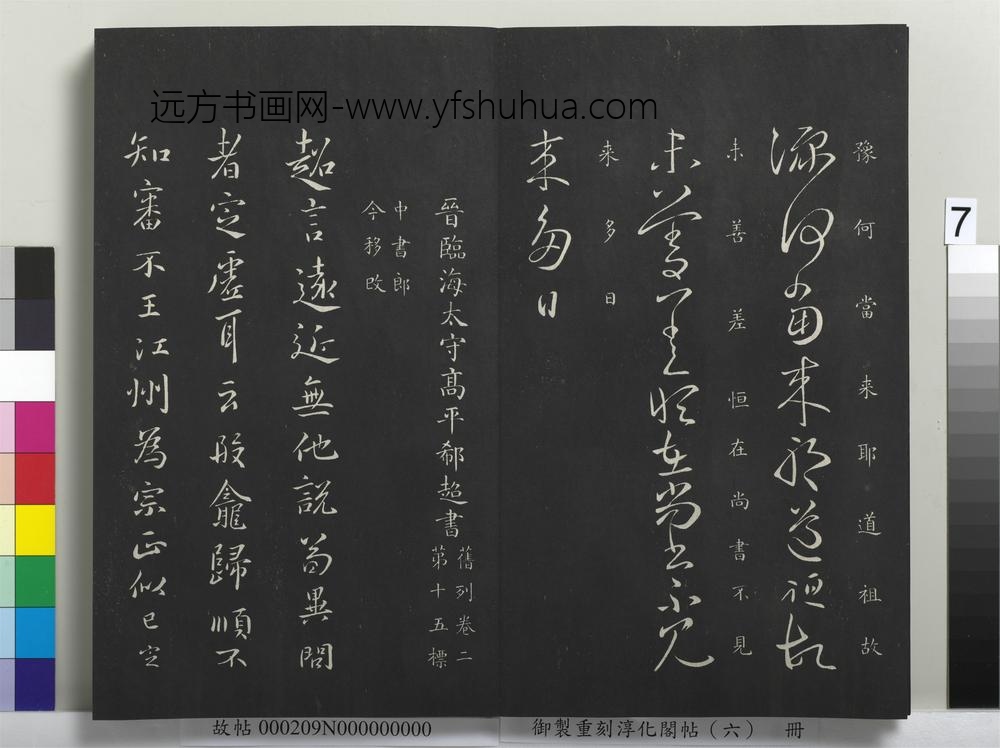 远方书画网-www.yfshuhua.com
7
豫何當来耶道祖故
豫何當来耶道祖故
未善差恒在尚書不見
未善差恒在尚書不見
来多日
来多日
晉臨海太守髙平郗超書
舊列卷二
苐十五標
中書郎
今移改
超言遠近無他說苟異問
者定虛耳云殷龕歸順不
知審不王江州為宗正似已定
故帖 000209N000000000
御製重刻淳化閣帖(六) 冊